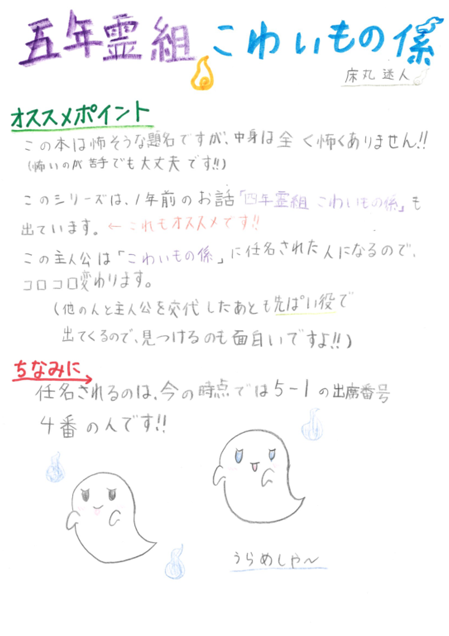 五年霊組 こわいもの係
床丸迷人
オススメポイント
この本は怖そうな題名ですが、中身は全く怖くありません!!
(怖いのが苦手でも大丈夫です!!)
このシリーズは、1年前のお話「四年霊組 こわいもの係」も
出ています。←これもオススメです!!
この主人公は「こわいもの係」に任名された人になるので、
コロコロ変わります。
(他の人と主人公を交代したあとも先ぱい役で
出てくるので、見つけるのも面白いですよ!!)
ちなみに
任名されるのは、今の時点では5-1の出席番号
4番の人です!!
うらめしや〜